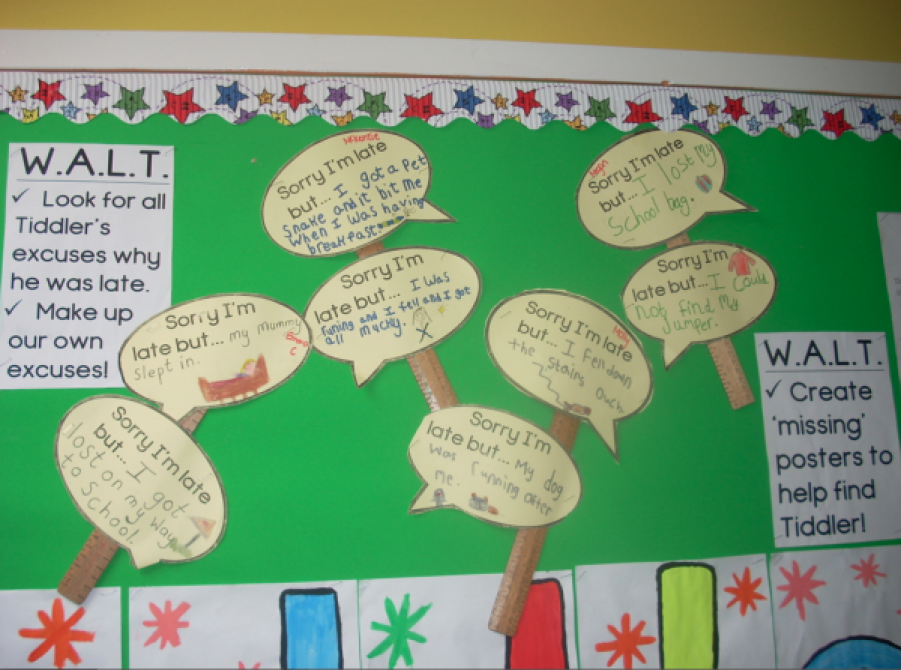 W.A.L.T.
✓ Look for all
Tiddler's
excuses why
he was late.
✓ Make up
our own
excuses!
Sorry I'm late
but... I got a pet
snake and it bit me
when I was having
breakfast.
Sorry I'm late
but... I lost my
school bag.
Sorry I'm
late but... I was
runing and I fell and I got
all muckly.
Sorry I'm
late but... I could
not find my
jumper.
Sorry I'm
late but... my mummy
slept in.
Sorry I'm late
but... I fell down
the stairs Ouch
Sorry I'm late
but... I got
lost on my way
to School.
Sorry I'm
late but... My dog
was running after
me.
W.A.L.T.
✓ Create
'missing'
posters to
help find
Tiddler!